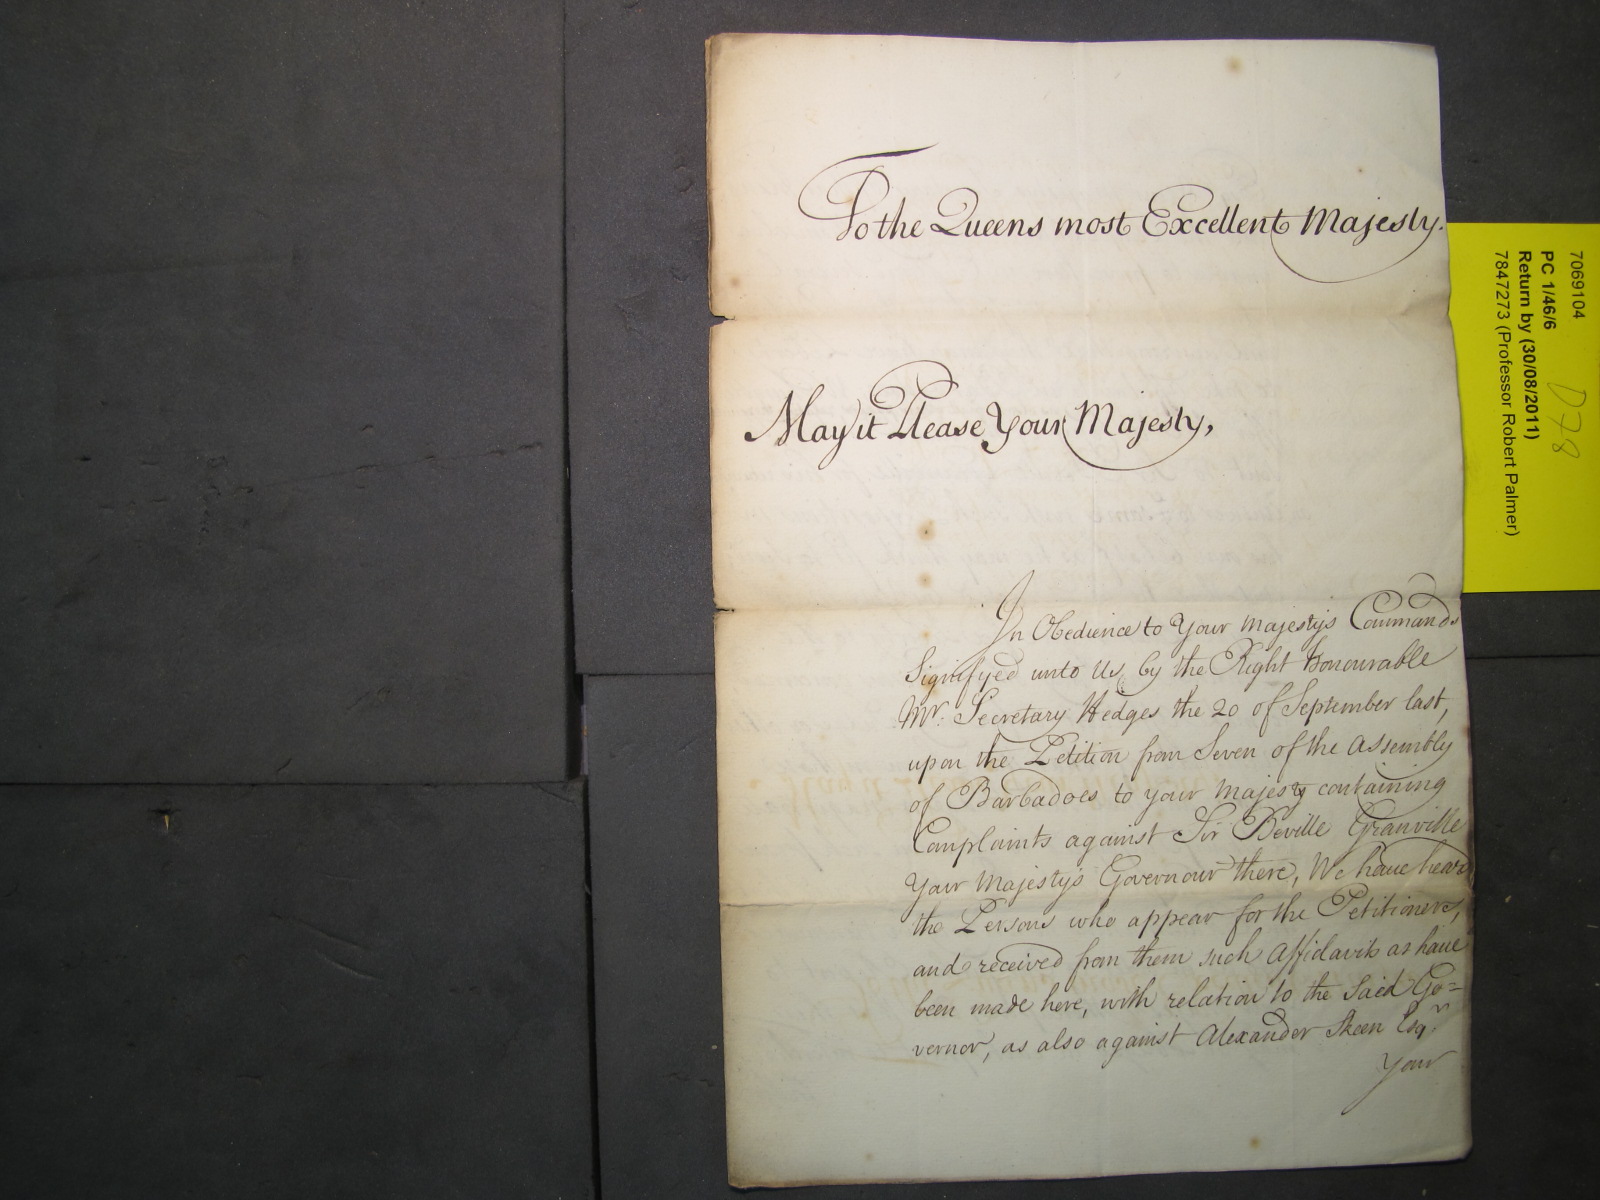 To the Queens most Excellent Majesty.
May it Please Your Majesty,
In Obedience to Your Majestys Commands
Signifyed unto Us, by the Right Honourable
Mr. Secretary Hedges the 20 of September last,
upon the Petition from Seven of the Assembly
of Barbadoes to your Majesty containing
Complaints against Sir Beville Granville
Your Majesty's Governour there, We have heard
the Persons who appear for the Petitioners,
and received from them such Affidavits as have
been made here, with relation to the Said Go=
vernor, as also against Alexander Skeen Esqr.
Your
7069104
PC 1/46/6
Return by (30/08/2011)
7847273 (Professor Robert Palmer)
D78